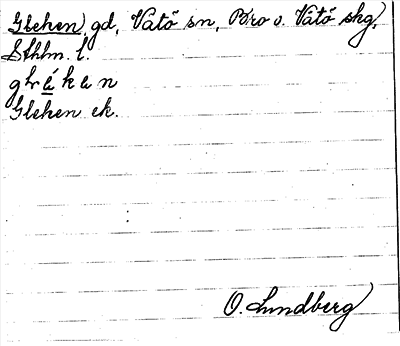 Grehen gd, Vätö sn, Bro o. Vätö skg,
Sthlm. l.
grákan
Grehen ek.
O. Lundberg